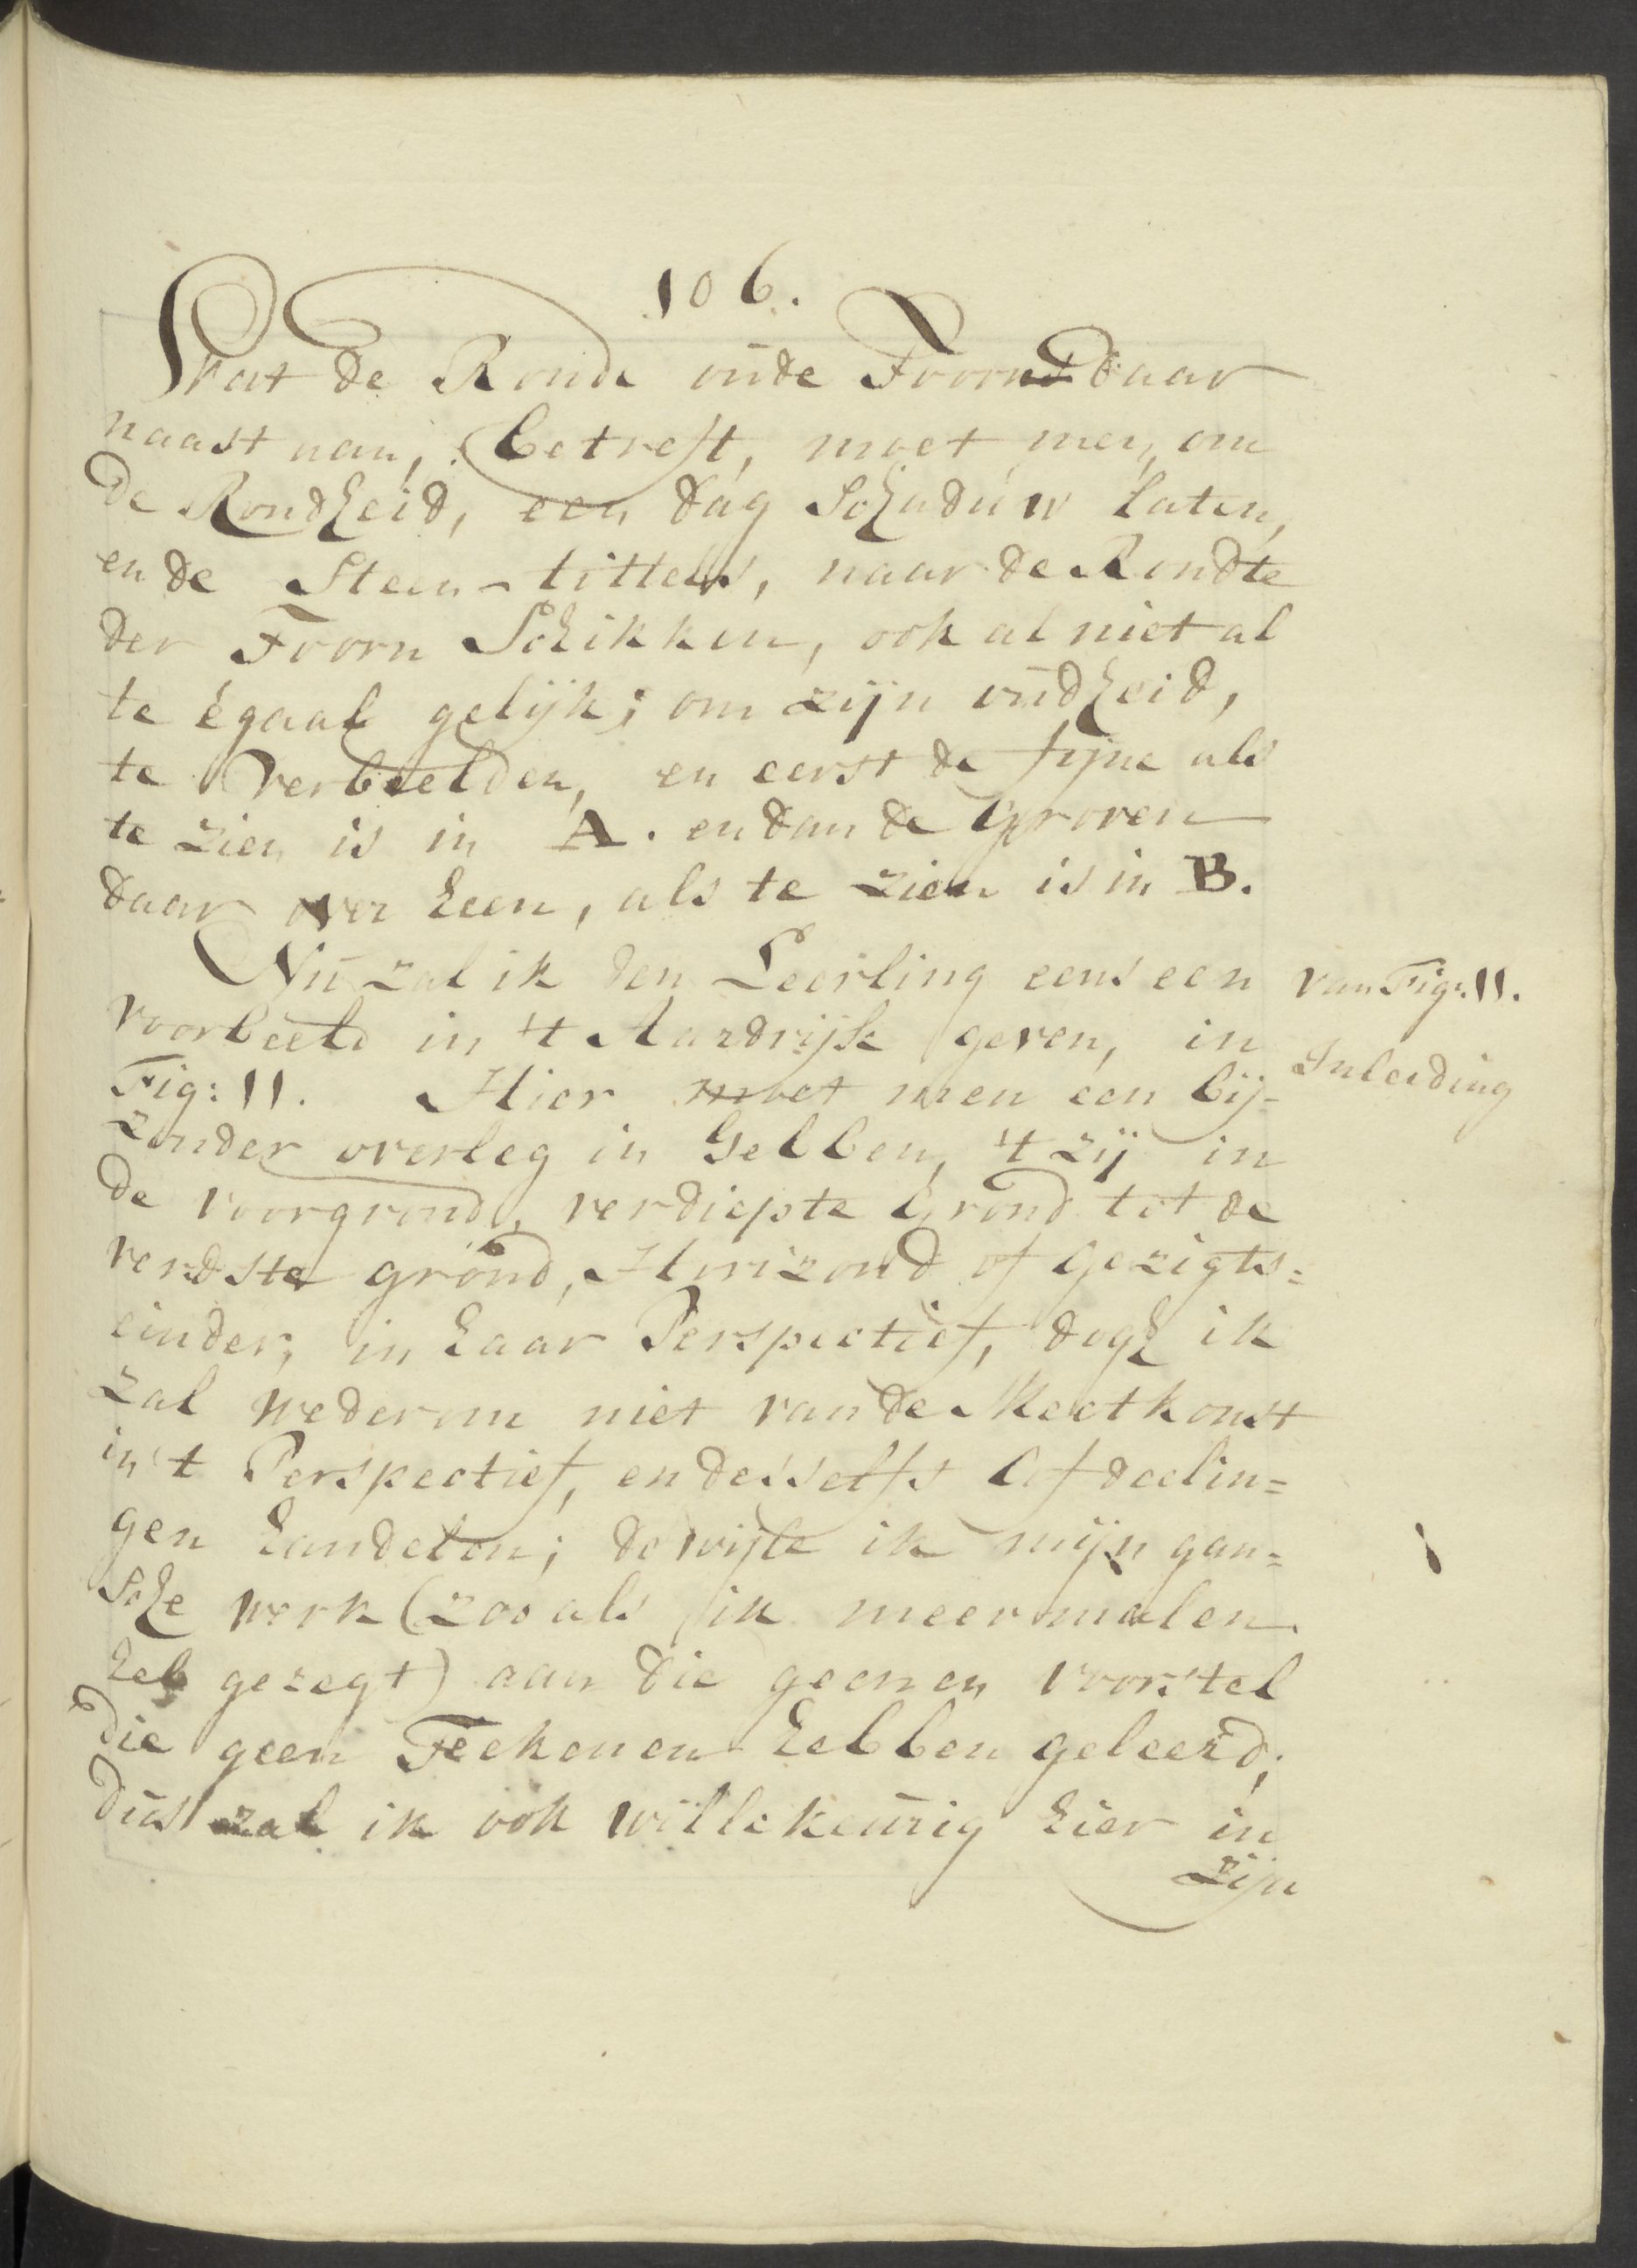 106.
Wat de Ronde oude Toorn daar
naast aan, betreft, moet men, om
de Rondheid, een dag Schaduw laten,
en de Steen-tittels, naar de Rondte
der Toorn Schikken, ook al niet al
te égaal gelijk; om zijn oudheid,
te Verbeelden, en eerst de fijne als
te zien is in A. en dan de Groven
daar over heen, als te zien is in B.
Nu zal ik den Leerling eens een
van Fig: 11.
voorbeeld in 't Aardrijk geven, in
Inleiding
Fig: 11. Hier moet men een bij-
zonder overleg in hebben, 't zij in
de voorgrond, verdiepte Grond tot de
verdste grond, Horizond of Gezigts=
einder, in haar Perspectief, dogh ik
zal wederom niet van de Meetkonst
in 't Perspectief, en desselfs Afdeelin=
gen handelen; dewijle ik mijn gan=
sche werk (zoo als ik meermalen
heb gezegt) aan die geenen voorstel
die geen Teekenen hebben geleerd;
dus zal ik ook willekeurig hier in
zijn